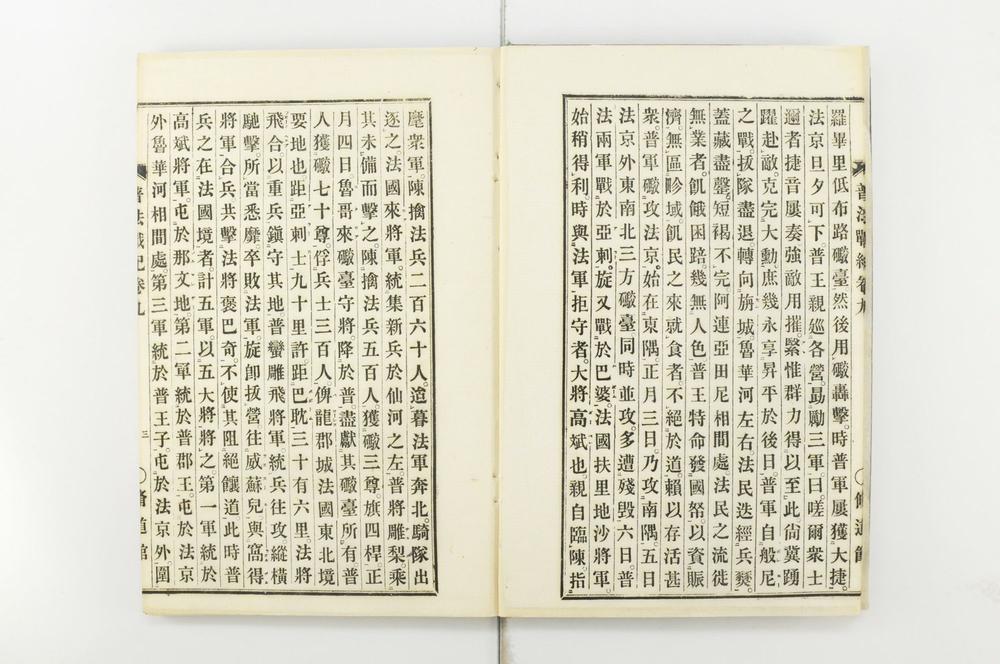 羅畢里低布路礮臺然後用礮轟擊。時普軍屢獲大捷。
法京旦夕可下。普王親巡各營。勗勵三軍。曰。嗟爾衆士
邇者捷音屢奏。強敵用摧。緊惟群力得以至此。尙冀踴
躍赴敵。克完大勳。庶幾永享昇平於後日。普軍自般尼
之戰。拔隊盡退。轉向旃城魯華河左右。法民迭經兵燹。
蓋藏盡罄。短褐不完。阿連亞田尼相間處。法民之流徙
無業者。飢餓困踣。幾無人色。普王特命發國帑。以資賑
濟。無區畛域。飢民之來就食者。不絕於道。賴以存活甚
衆。普軍礮攻法京。始在東隅。正月三日。乃攻南隅。五日
法京外東南北三方礮臺。同時並攻。多遭殘毀。六日。普
法兩軍戰於亞刺。旋又戰於巴婆。法國扶里地沙將軍。
始稍得利。時與法軍拒守者。大將高斌也。親自臨陳。指
麾衆軍。陳擒法兵二百六十人。追暮。法軍奔北。騎隊出
逐之。法國來將軍。統集新兵於仙河之左。普將雕梨。乘
其未備而擊之。陳擒法兵五百人。獲礮三尊。旗四桿。正
月四日。魯哥來礮臺守將。降於普。盡獻其礮臺所有。普
人獲礮七十尊。俘兵士三百人。俾龍郡城。法國東北境
要地也。距亞刺士九十里許。距巴耽三十有六里。法將
飛合以重兵鎭守其地。普蠻雕飛將軍。統兵往攻。縱橫
馳擊。所當悉靡。卒敗法軍。旋卽拔營。往威蘇兒。與窩得
將軍。合兵共擊法將褒巴奇。不使其阻絕餽道。此時普
兵之在法國境者。計五軍。以五大將將之。第一軍統於
高斌將軍。屯於那文地。第二軍統於普郡王。屯於法京
外魯華河相間處。第三軍統於普王子。屯於法京外。圍
普法戰紀卷九
三
脩道館